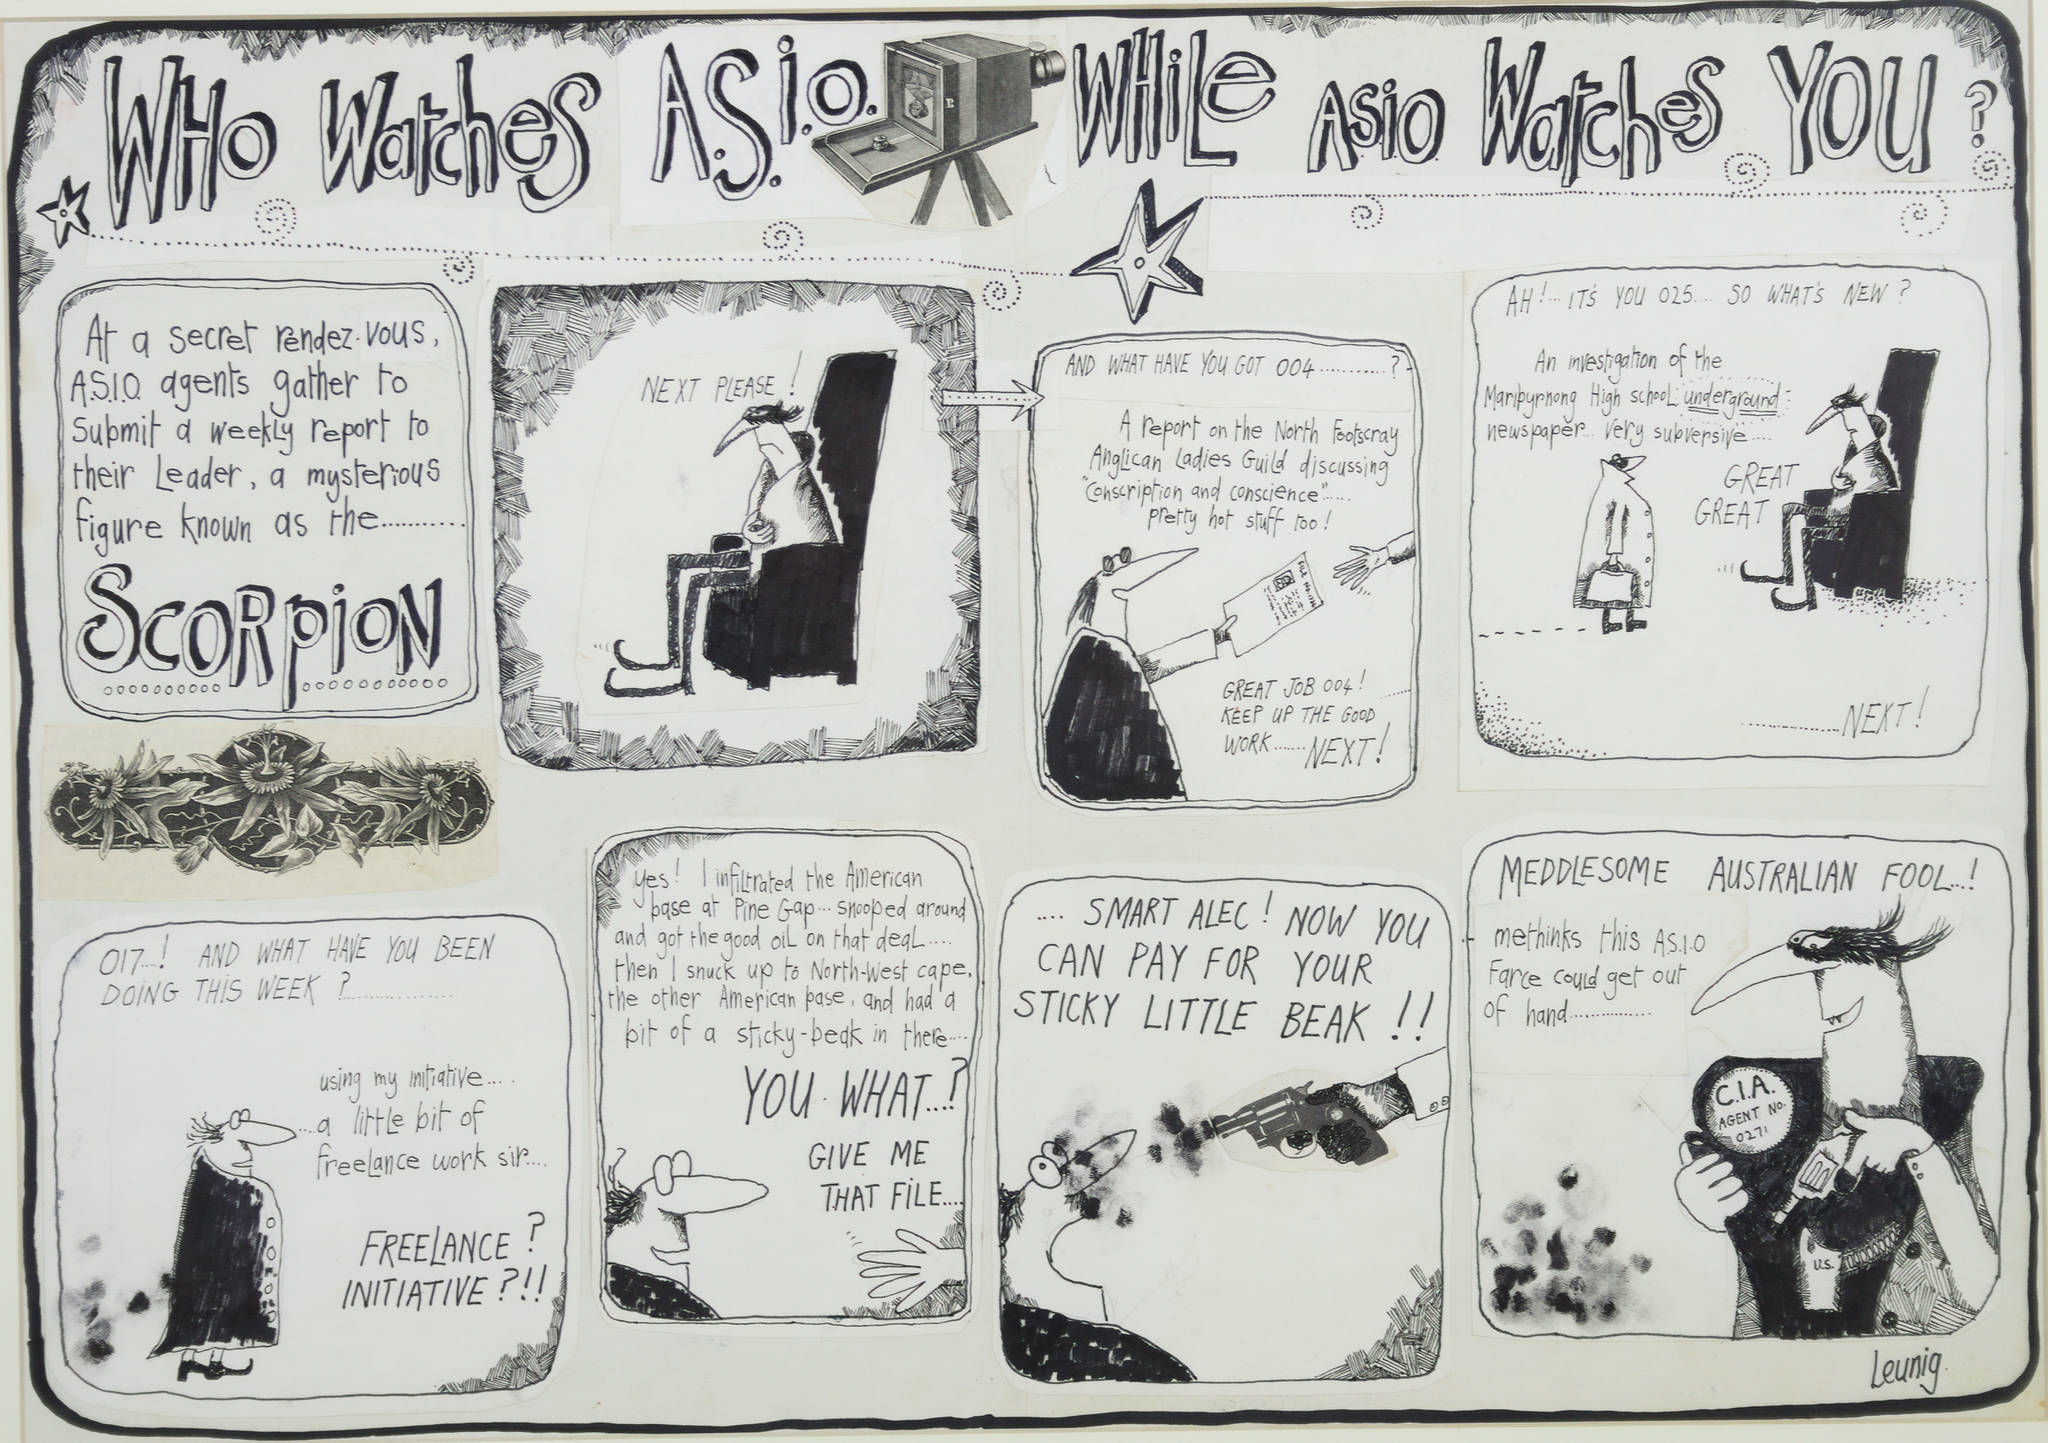 WHO Watches A.S.i.O. WHiLe A.S.iO. Watches YOU?
At a secret rendez-vous,
A.S.I.O. agents gather to
Submit a weekly report to
their Leader, a mysterious
figure known as the..........
SCORpiON
NEXT PLEASE!
AND WHAT HAVE YOU GOT 004............?
A report on the North Footscray
Anglican Ladies Guild discussing
"Conscription and conscience".....
pretty hot stuff too!
GREAT JOB 004!
KEEP UP THE GOOD
WORK......NEXT!
AH!... IT'S YOU 025.... SO WHAT'S NEW?
An investigation of the
Maribyrnong High school underground
newspaper... very subversive....
GREAT
GREAT
............NEXT!
017....! AND WHAT HAVE YOU BEEN
DOING THIS WEEK?................
using my initiative.....
....a little bit of
freelance work sir....
FREELANCE?
INITIATIVE?!!
Yes! I infiltrated the American
base at Pine Gap... snooped around
and got the good oil on that deal....
then I snuck up to North-West cape,
the other American base, and had a
bit of a sticky-beak in there....
YOU WHAT...?
GIVE ME
THAT FILE....
.... SMART ALEC! NOW YOU
CAN PAY FOR YOUR
STICKY LITTLE BEAK!!
MEDDLESOME AUSTRALIAN FOOL...!
methinks this A.S.I.O
Farce could get out
of hand..............
C.I.A.
AGENT NO.
0271
U.S.
Leunig.